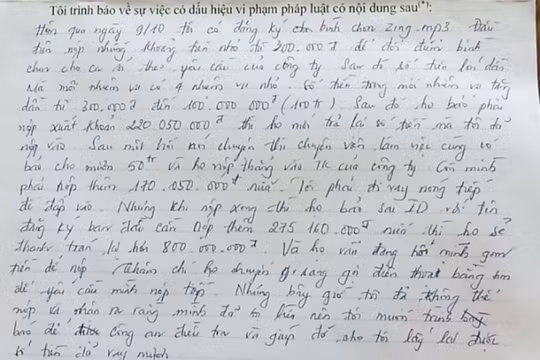 Tôi trình báo về sự việc có dấu hiệu vi phạm pháp luật có nội dung sau(*):
Hôm qua ngày 9/10 thì có đăng ký bình chọn Zing.mp3 Đầu
tiên nộp những khoảng tiền nhỏ từ 200.000đ để đổi điểm bình
chọn cho ca sĩ theo yêu cầu của công ty. Sau đó số tiền lớn dần
Và mỗi nhiệm vụ có 4 nhiệm vụ nhỏ. số tiền trong mỗi nhiệm vụ tăng
dần từ 300.000đ đến 100.000 000đ (100tr) Sau đó họ báo phải
nộp xuất khoản 220 050 000đ thì họ mới trả lại số tiền mà tôi đã
nộp vào. Sau một hồi nói chuyện thì chuyên viên làm việc cùng có
báo cho mình 50tr và họ nộp thẳng vào TK của công ty Còn mình
phải nộp thêm 170.050.000đ nữa. Tôi phải đi vay nóng tiếp
để đắp vào. Nhưng khi nộp xong thì họ bảo sai ID với tên
đăng ký ban đầu cần nộp thêm 275 160.000đ nữa thì họ sẽ
thanh toán lại hơn 800.000.000đ Và họ vẫn đang hối mình gom
tiền để nộp Thậm chí họ chuyển sang gọi điện thoại bằng
để yêu cầu mình nộp tiếp. Nhưng bây giờ tôi đã không thể
nộp và nhận ra rằng mình đã bị lừa nên tôi muốn trình
báo để công an điều tra và giúp đỡ cho tôi lấy lại được
số tiền đã vay mượn